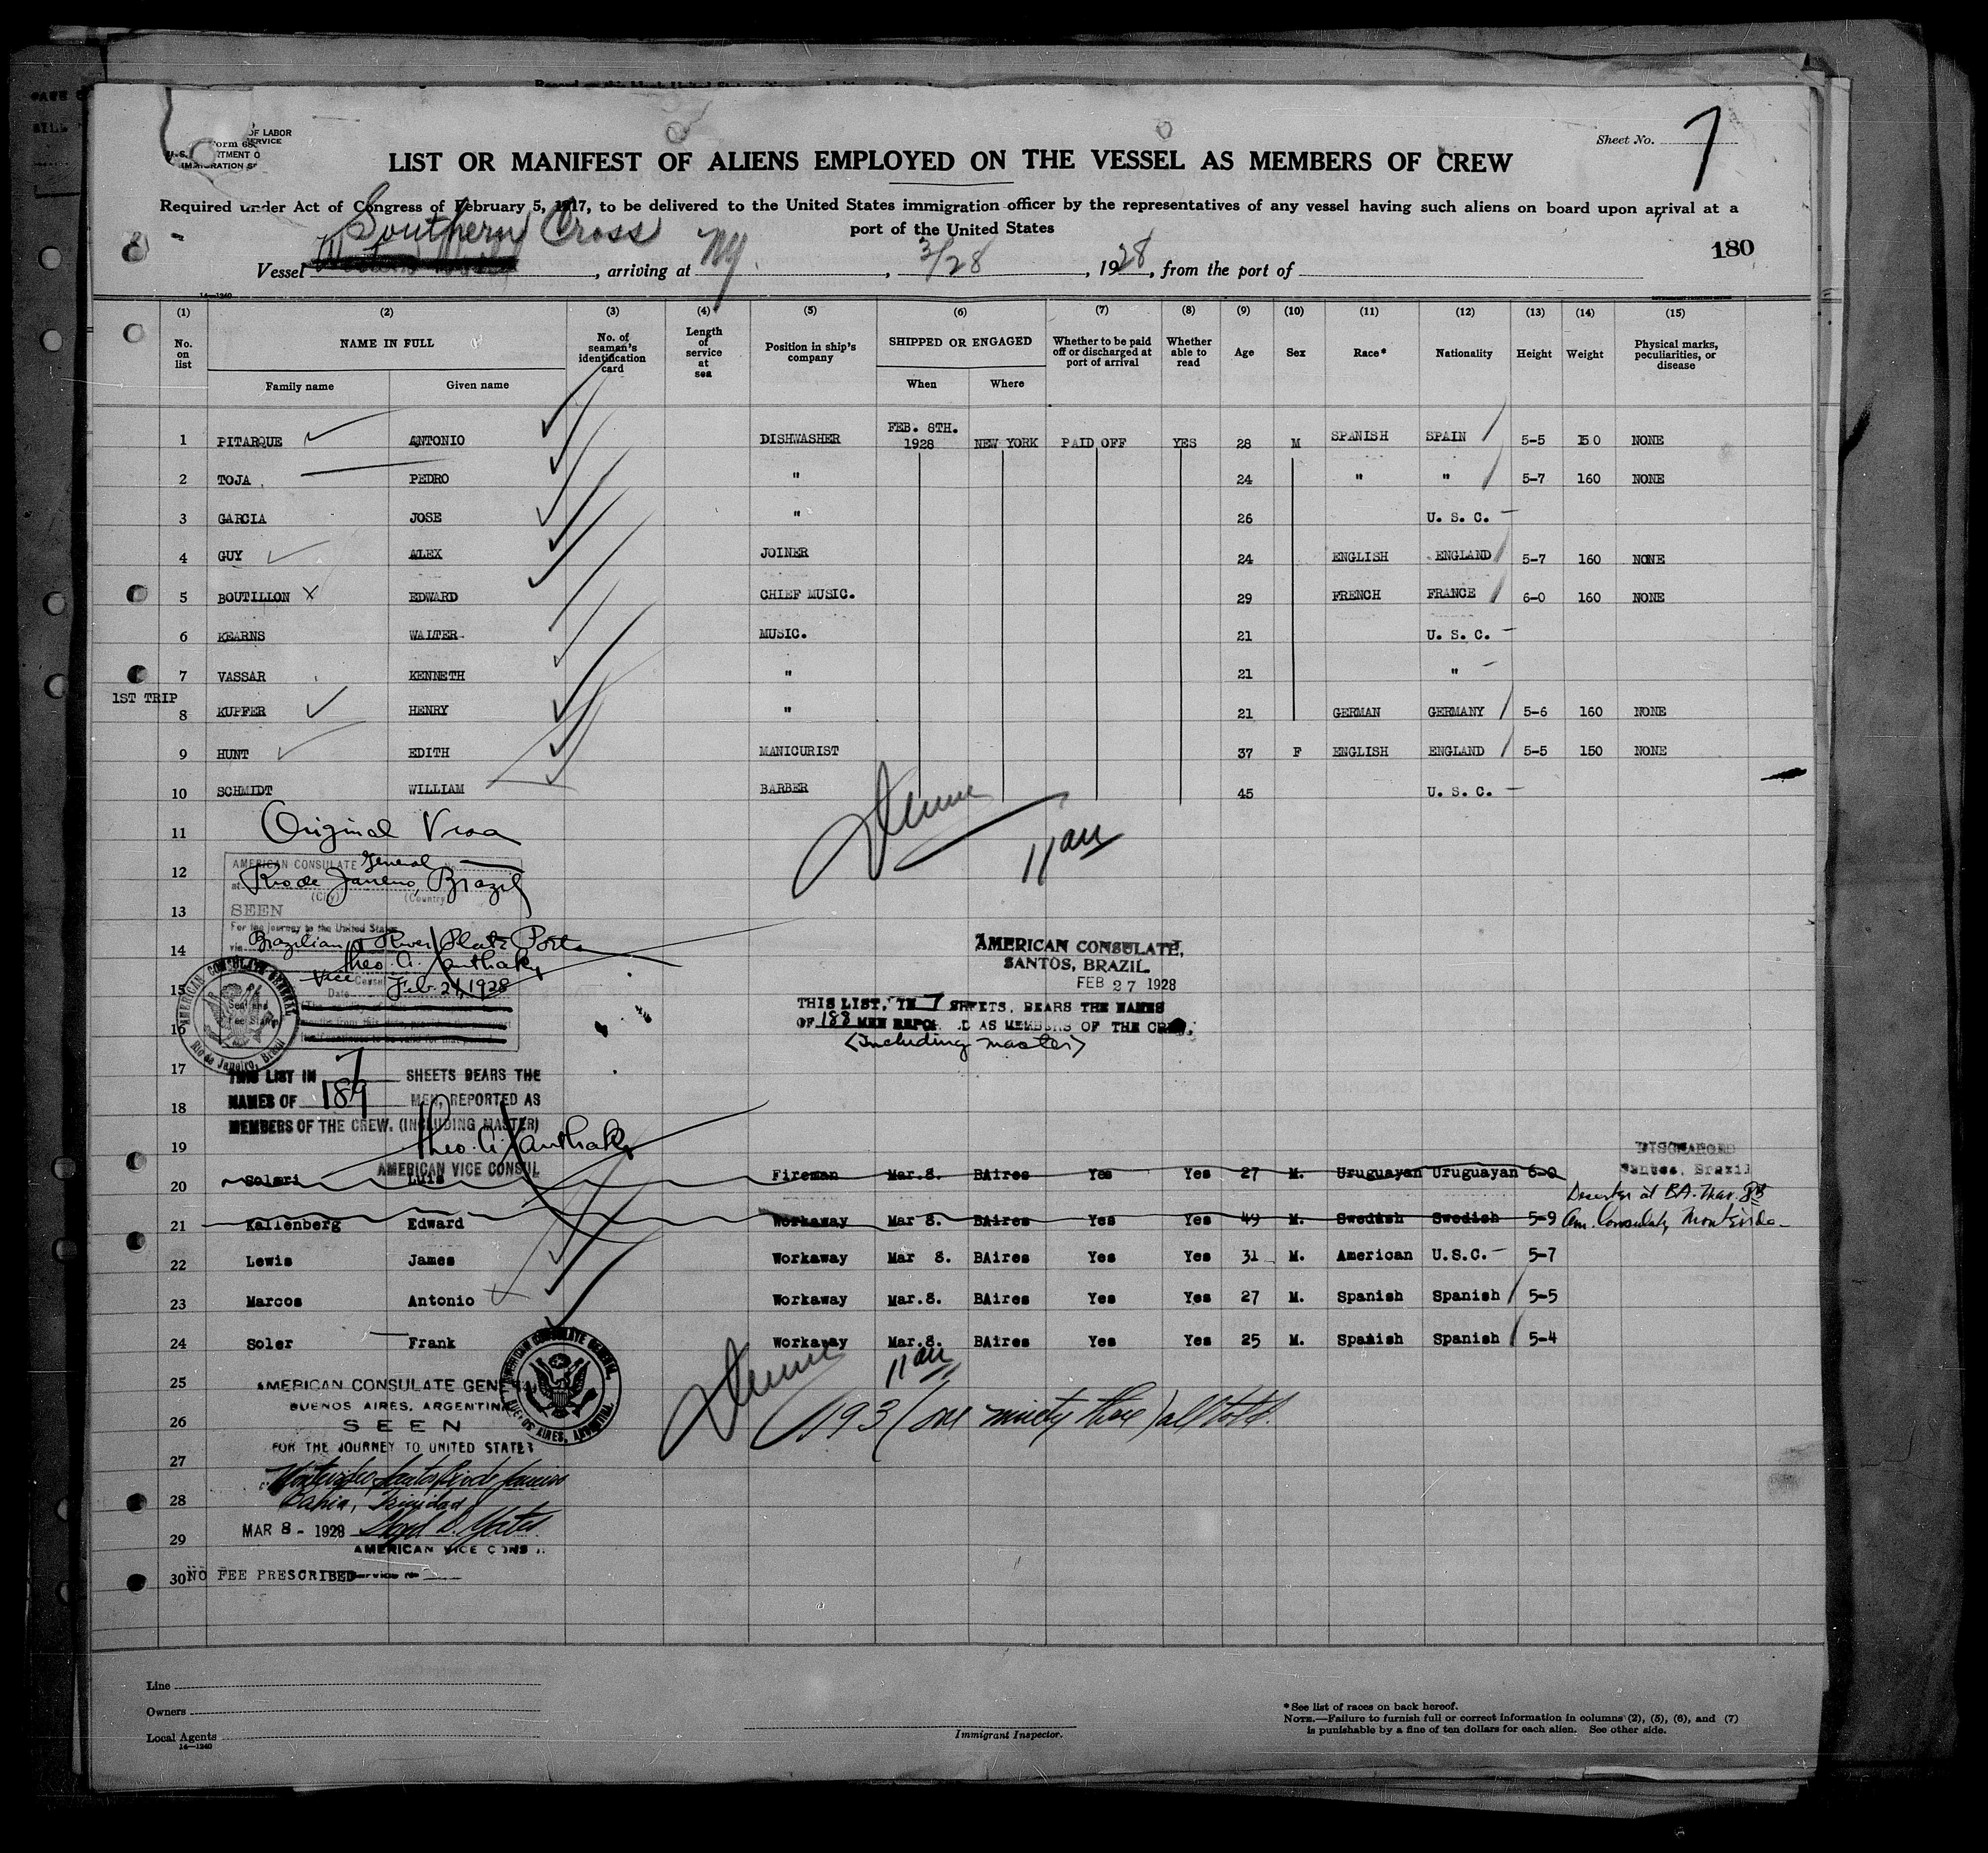 Sheet No. 7
LIST OR MANIFEST OF ALIENS EMPLOYED ON THE VESSEL AS MEMBERS OF CREW
Required under Act of Congress of February 5, 1917, to be delivered to the United States immigration officer by the representatives of any vessel having such aliens on board upon arrival at a
port of the United States
180
Vessel Southern Cross, arriving at NY., 3/28, 1928, from the port of
14—1240
(1) (2) (3) (4) (5) (6) (7) (8) (9) (10) (11) (12) (13) (14) (15)
No. on list NAME IN FULL No. of seaman's identification card Length of service at sea Position in ship's company SHIPPED OR ENGAGED Whether to be paid off or discharged at port of arrival Whether able to read Age Sex Race* Nationality Height Weight Physical marks, peculiarities, or disease
Family name Given name When Where
1 PITARQUE ANTONIO DISHWASHER FEB. 8TH. 1928 NEW YORK PAID OFF YES 28 M SPANISH SPAIN 5-5 150 NONE
2 TOJA PEDRO " 24 " " 5-7 160 NONE
3 GARCIA JOSE " 26 U. S. C.
4 GUY ALEX JOINER 24 ENGLISH ENGLAND 5-7 160 NONE
5 BOUTILLON EDWARD CHIEF MUSIC. 29 FRENCH FRANCE 6-0 160 NONE
6 KEARNS WALTER MUSIC. 21 U. S. C.
7 VASSAR KENNETH " 21 "
1ST TRIP
8 KUPFER HENRY " 21 GERMAN GERMANY 5-6 160 NONE
9 HUNT EDITH MANICURIST 37 F ENGLISH ENGLAND 5-5 150 NONE
10 SCHMIDT WILLIAM BARBER 45 U. S. C.
11 Original Visa
AMERICAN CONSULATE General No.
12 at Rio de Janeiro, Brazil
(City) (Country)
13 SEEN
For the journey to the United States
14 via Brazilian & River Plate Ports
Theo. A. Xanthaky
Vice Consul
15 Date Feb. 24, 1928
AMERICAN CONSULATE GENERAL
Rio de Janeiro, Brazil
16
AMERICAN CONSULATE,
SANTOS, BRAZIL.
FEB 27 1928
THIS LIST, IN 7 SHEETS, BEARS THE NAMES
OF 188 MEN REPORTED AS MEMBERS OF THE CREW.
(Including master)
17 THIS LIST IN 7 SHEETS BEARS THE
18 NAMES OF 189 MEN, REPORTED AS
MEMBERS OF THE CREW. (INCLUDING MASTER)
19 Theo. A. Xanthaky
AMERICAN VICE CONSUL
DISCHARGED
Santos, Brazil
20 Solari Luis Fireman Mar.8. BAires Yes Yes 27 M. Uruguayan Uruguayan 6-0
21 Kallenberg Edward Workaway Mar 8. BAires Yes Yes 49 M. Swedish Swedish 5-9
Am. Consulate, Montevideo
22 Lewis James Workaway Mar 8. BAires Yes Yes 31 M. American U.S.C. 5-7
23 Marcos Antonio Workaway Mar.8. BAires Yes Yes 27 M. Spanish Spanish 5-5
24 Soler Frank Workaway Mar.8. BAires Yes Yes 25 M. Spanish Spanish 5-4
25 AMERICAN CONSULATE GENERAL
BUENOS AIRES, ARGENTINA
26 SEEN
193 (one ninety three) all told.
FOR THE JOURNEY TO UNITED STATES
27 Montevideo, Santos, Rio de Janeiro
28 Bahia, Trinidad
29 MAR 8 - 1928 Lloyd D. Yates
AMERICAN VICE CONSUL
30 NO FEE PRESCRIBED Service No
AMERICAN CONSULATE GENERAL, BUENOS AIRES, ARGENTINA.
Line
Owners
Local Agents
14—1240
Immigrant Inspector.
*See list of races on back hereof.
NOTE.—Failure to furnish full or correct information in columns (2), (5), (6), and (7)
is punishable by a fine of ten dollars for each alien. See other side.